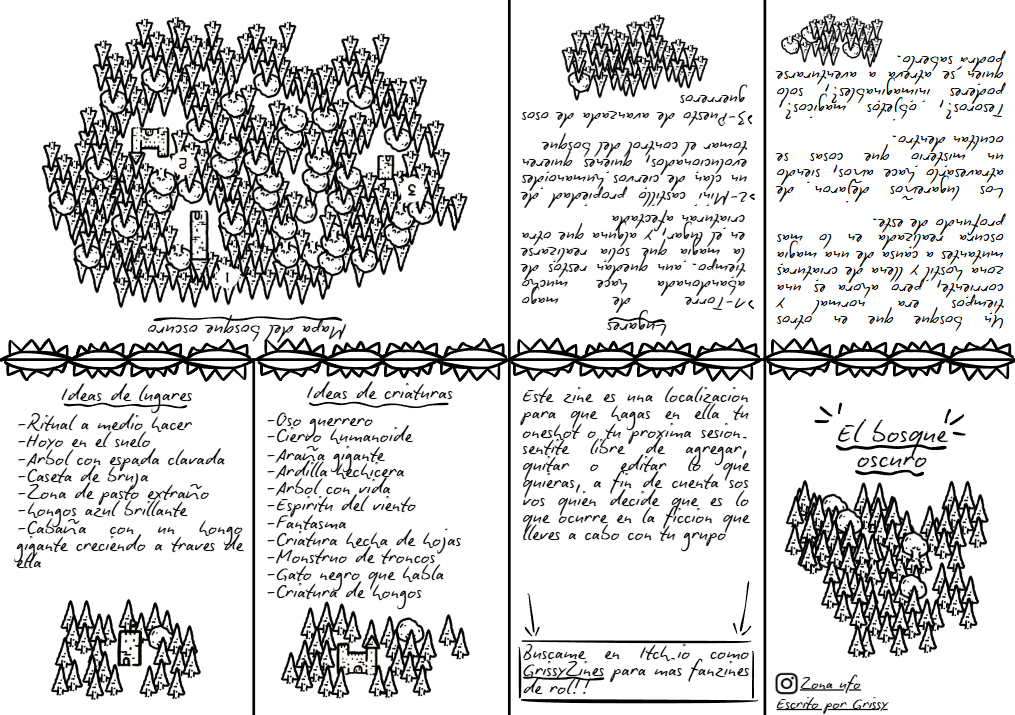 El bosque
oscuro
Zona ufo
Escrito por Grissy
Un bosque que en otros
tiempos era normal y
corriente, pero ahora es una
zona hostil y llena de criaturas
mutantes a causa de una magia
oscura realizada en lo mas
profundo de este.
Los lugareños dejaron de
atravesarlo hace años, siendo
un misterio que cosas se
ocultan dentro.
Tesoros?, objetos magicos?,
poderes inimaginables?, solo
quien se atreva a aventurarse
podra saberlo.
Lugares
>1-Torre de mago
abandonada hace mucho
tiempo. aun quedan restos de
la magia que solia realizarse
en el lugar, y alguna que otra
criatura afectada
>2-Mini castillo propiedad de
un clan de ciervos humanoides
evolucionados, quienes quieren
tomar el control del bosque
>3-Puesto de avanzada de osos
guerreros
Mapa del bosque oscuro
1
2
3
Ideas de lugares
-Ritual a medio hacer
-Hoyo en el suelo
-Arbol con espada clavada
-Caseta de bruja
-Zona de pasto extraño
-hongos azul brillante
-Cabaña con un hongo
gigante creciendo a traves de
ella
Ideas de criaturas
-Oso guerrero
-Ciervo humanoide
-Araña gigante
-Ardilla hechicera
-Arbol con vida
-Espiritu del viento
-Fantasma
-Criatura hecha de hojas
-Monstruo de troncos
-Gato negro que habla
-Criatura de hongos
Este zine es una localizacion
para que hagas en ella tu
oneshot o tu proxima sesion.
sentite libre de agregar,
quitar o editar lo que
quieras, a fin de cuenta sos
vos quien decide que es lo
que ocurre en la ficcion que
lleves a cabo con tu grupo
Buscame en Itch.io como
GrissyZines para mas fanzines
de rol!!